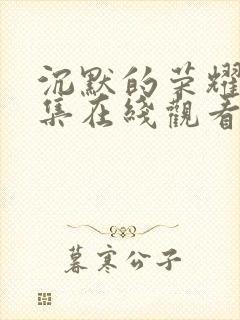 沉默的荣耀
集在綫觀看
暮寒公子